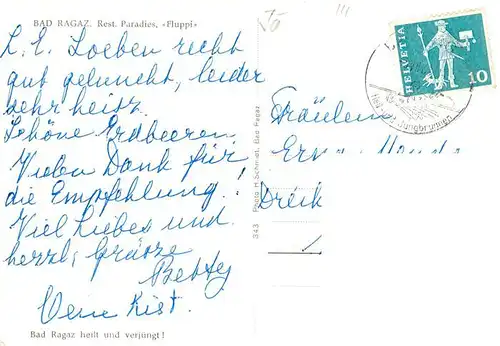 BAD RAGAZ. Rest. Paradies, «Fluppi»
L. E. Soeben recht
gut geluncht, leider
sehr heiss.
Schöne Erdbeeren.
Vielen Dank für
die Empfehlung!
Viel Liebes und
herzl. Grüsse
Betty
Bad Ragaz heilt und verjüngt!
343 Photo H. Schmidt, Bad Ragaz
HELVETIA
10
Jungbrunnen
Fräulein